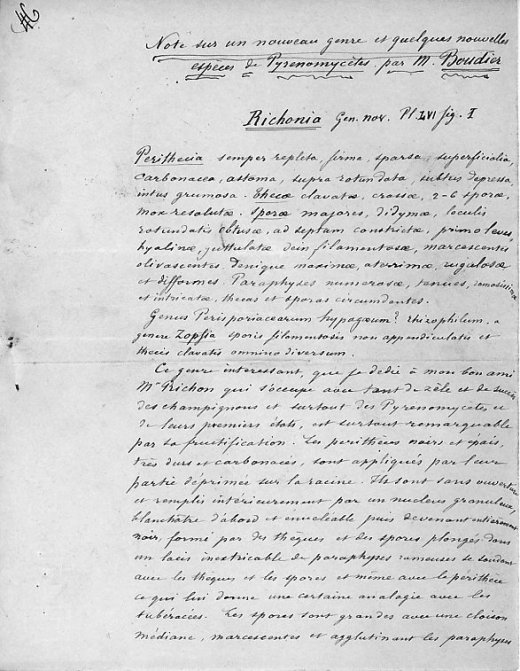 Note sur un nouveau genre et quelques nouvelles
espèces de Pyrenomycètes, par M Boudier
Richonia Gen. nov. Pl. LVI fig. I
Perithecia semper repleta, firma, sparsa, superficialia,
carbonacea, astoma, supra rotundata, subtus depressa,
intus grumosa. Thecæ clavatæ, crassæ, 2-6 sporæ,
mox resolutæ. Sporæ majores, didymæ, loculis
rotundatis obtusæ, ad septam constrictæ, primo leves,
hyalinæ, guttulatæ dein filamentosæ, marcescentes
olivascentes, Denique maximæ, aterrimæ, rugulosæ
et difformes. Paraphyses numerosæ, tenues, ramosissimæ
et intricatæ, thecas et sporas circumdentes.
Genus Perisporiacearum hypogæum? rhizophilum, a
genere Zopfia sporis filamentosis non appendiculatis et
thecis clavatis omnino diversum.
Ce genre intéressant, que je dédie à mon bon ami
Mr Richon qui s'occupe avec tant de zèle et de succès
des champignons et surtout des Pyrenomycètes et
de leurs premiers états, est surtout remarquable
par sa fructification. Les perithèces noirs et épais,
très durs et carbonacés, sont appliqués par leur
partie déprimée sur la racine. Ils sont sans ouverture
et remplis intérieurement par un nucleus granuleux,
blanchâtre d'abord et énucléable puis devenant entièrement
noir, formé par des thèques et des spores plongés dans
un lacis inextricable de paraphyses rameuses se soudant
avec les thèques et les spores et même avec le perithèce
ce qui lui donne une certaine analogie avec les
tubéracées. Les spores sont grandes avec une cloison
médiane, marcescentes et agglutinant les paraphyses